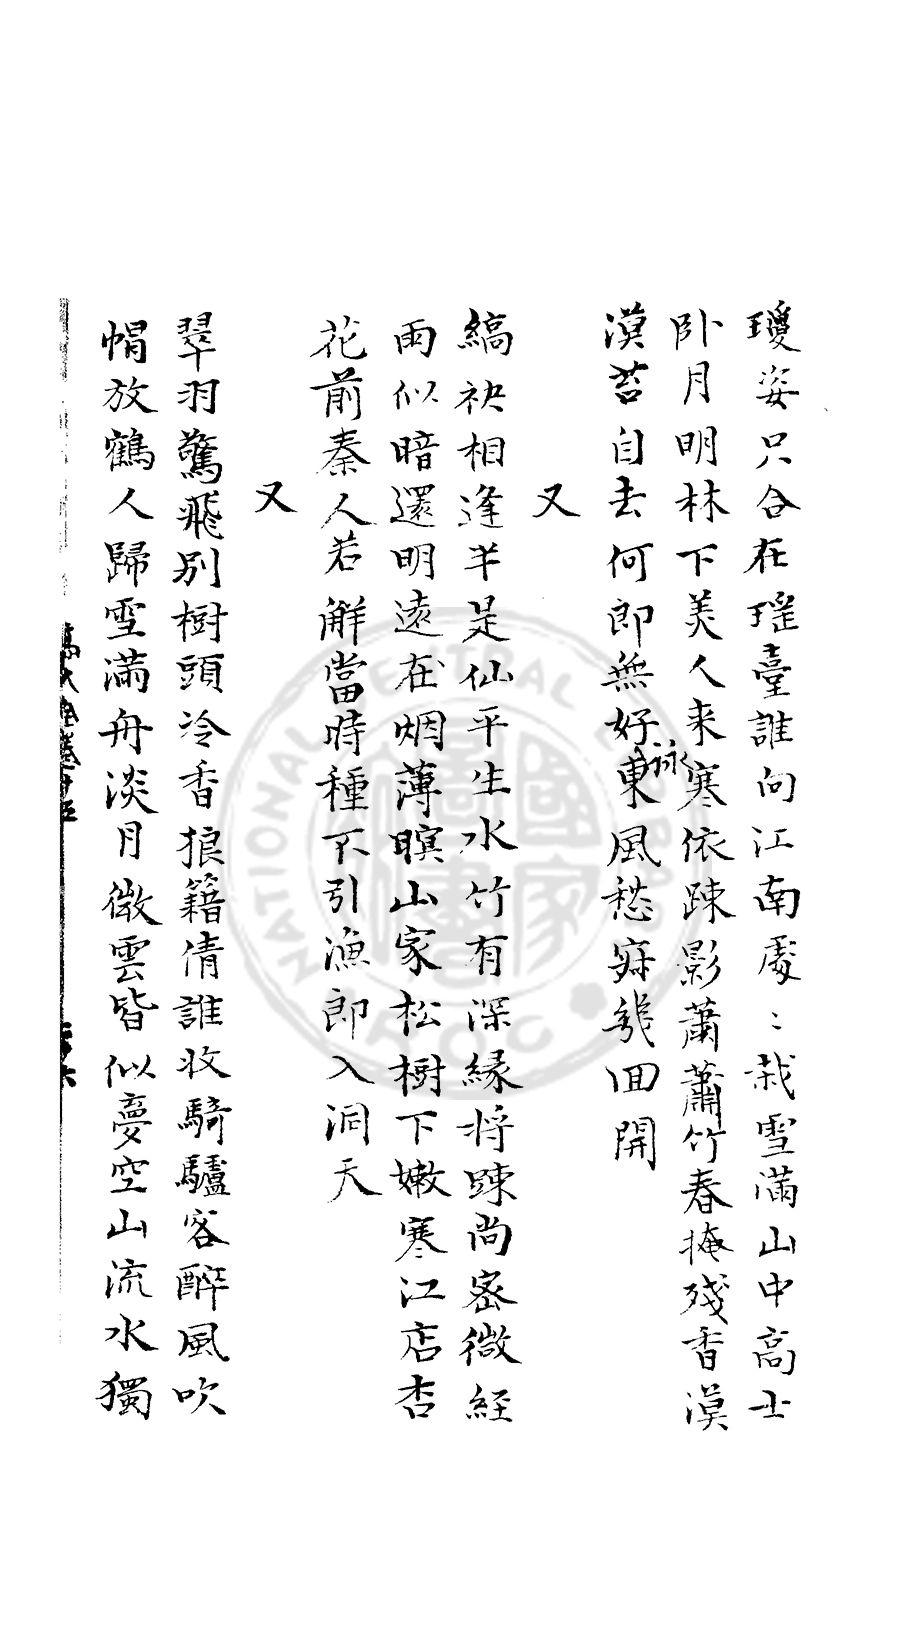 瓊姿只合在瑤臺誰向江南處〻栽雪滿山中高士
卧月明林下美人来寒依踈影蕭蕭竹春掩殘香漠
漠苔自去何郎無好詠東風愁寂幾回開
又
縞袂相逢半是仙平生水竹有深緣將踈尚密微經
雨似暗還明遠在烟薄暝山家松樹下嫩寒江店杏
花前秦人若觧當時種不引漁郎入洞天
又
翠羽驚飛别樹頭冷香狼籍倩誰收騎驢客醉風吹
帽放鶴人歸雪滿舟淡月微雲皆似夢空山流水獨
NATIONAL CENTRAL LIBRARY
R.O.C.
國家圖書館